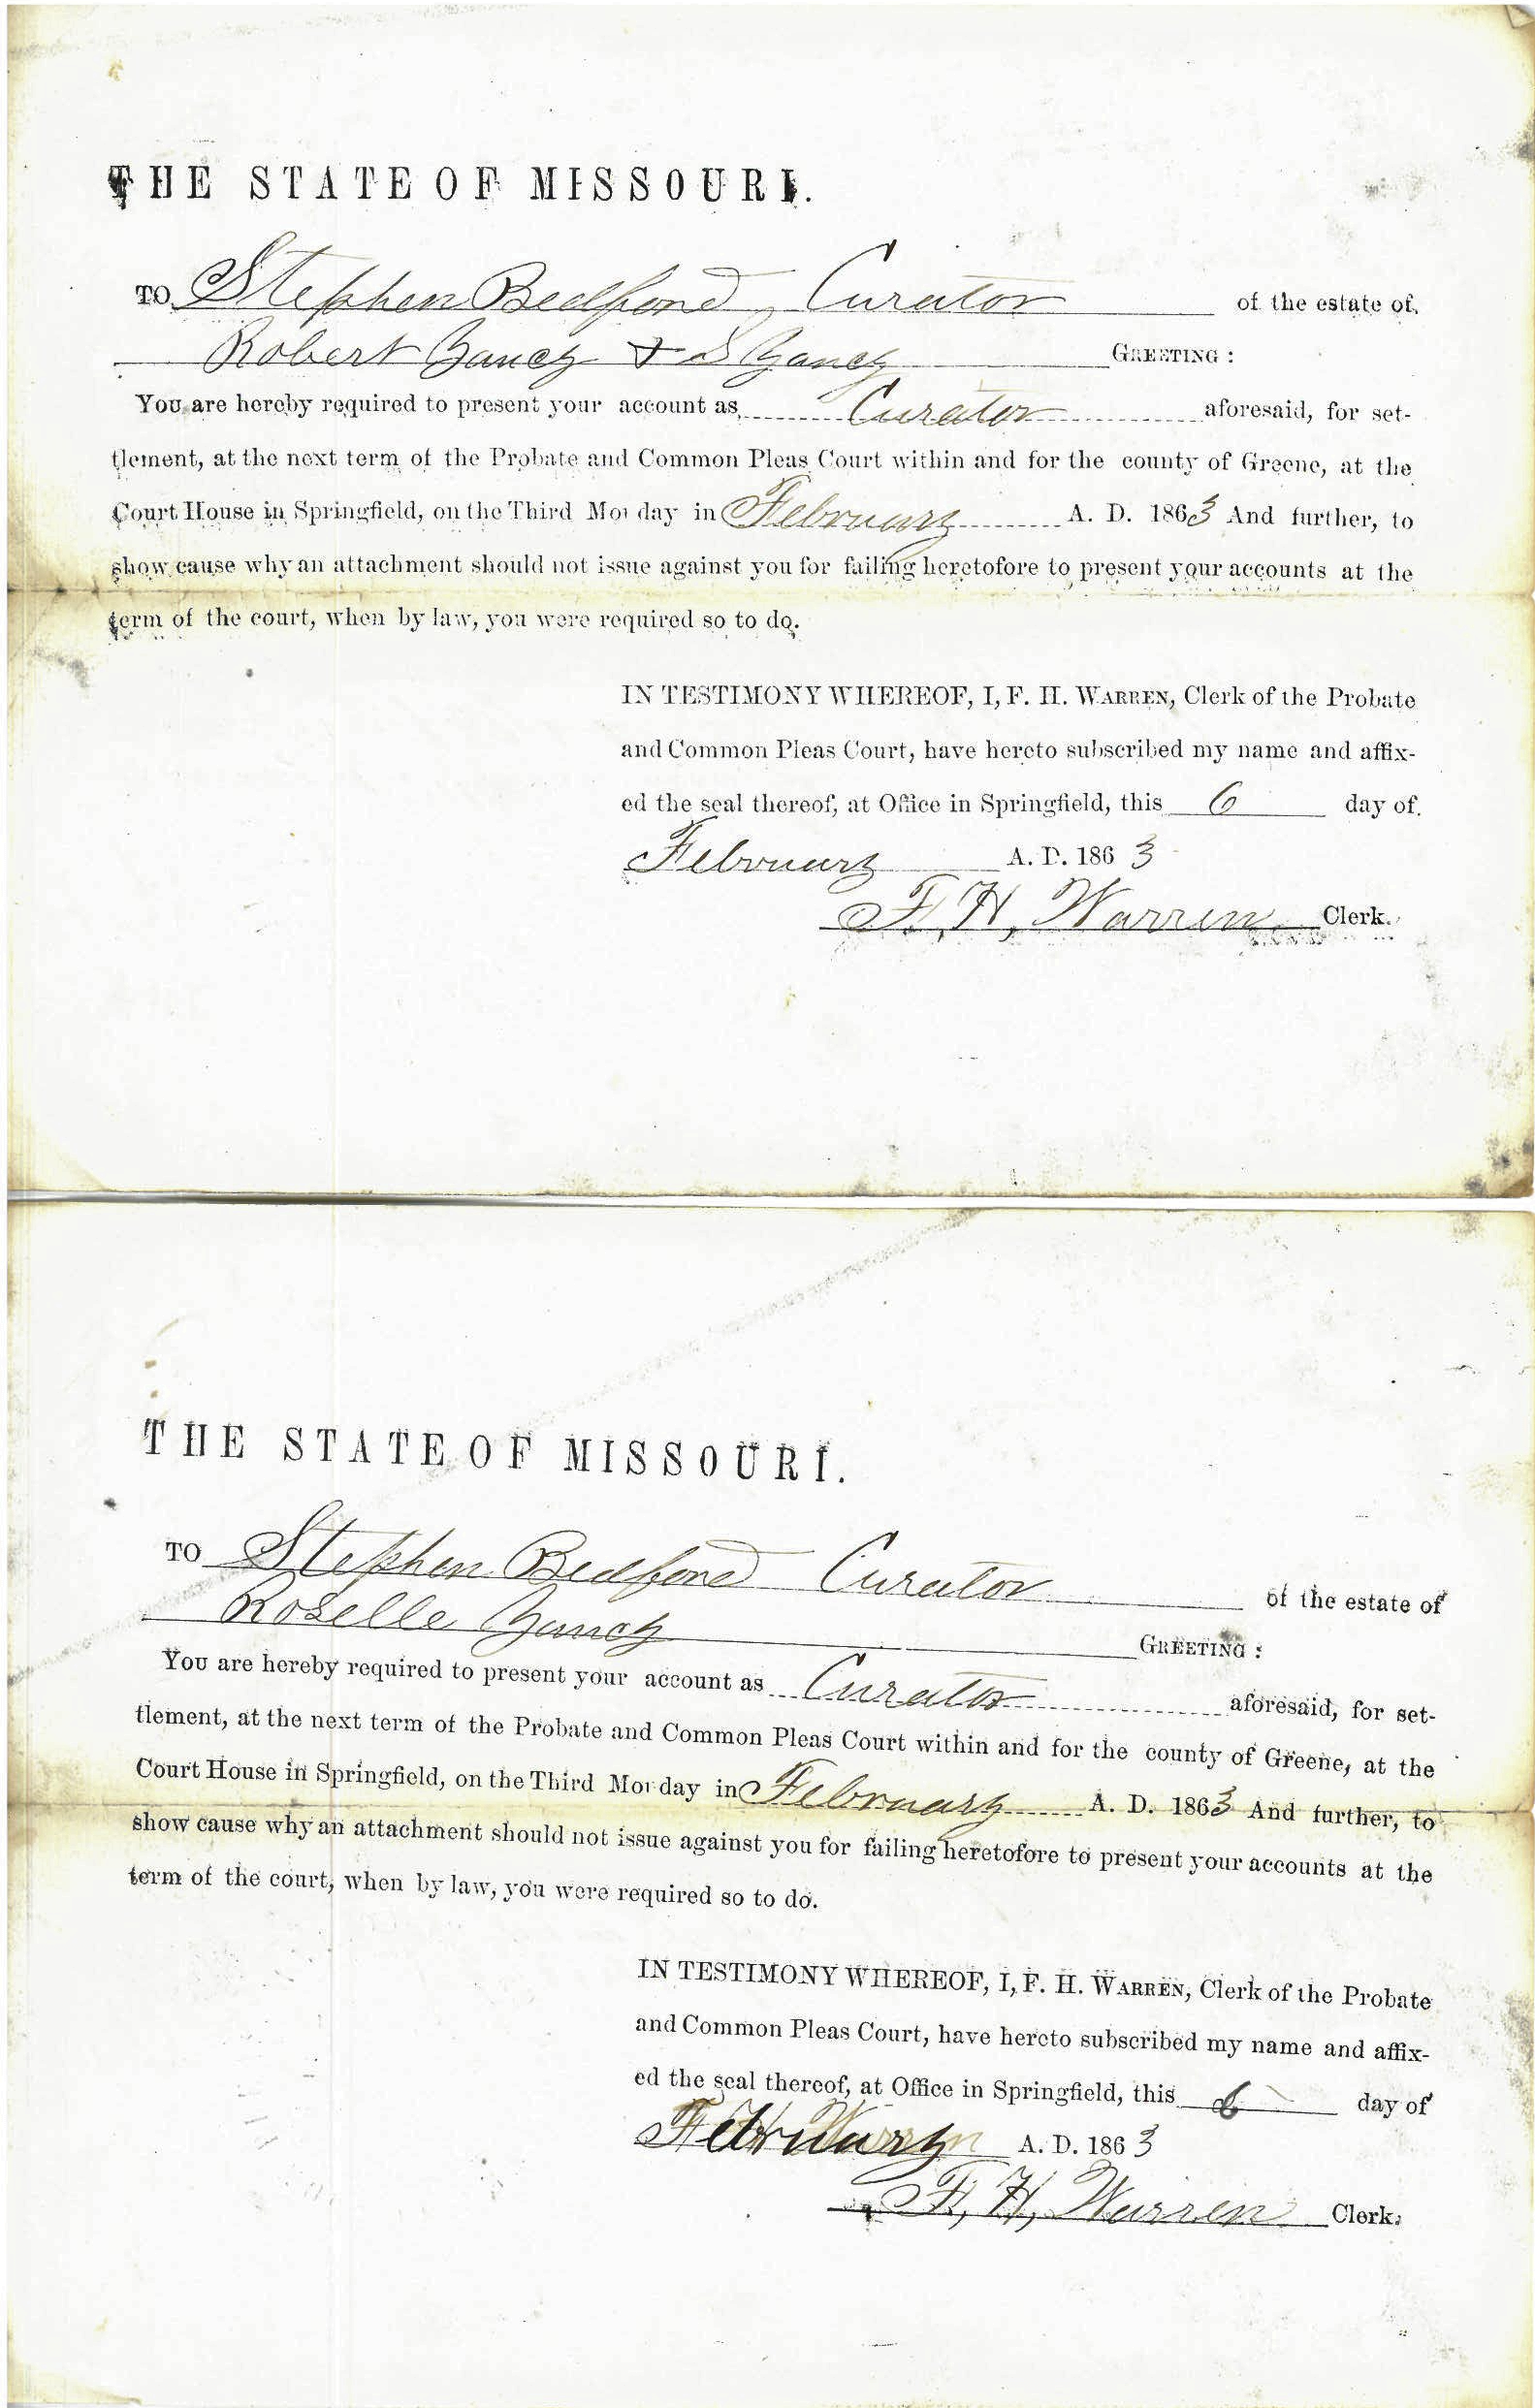 THE STATE OF MISSOURI.
TO Stephen Bedford, Curator of the estate of
Robert Yancy & S Yancy GREETING:
You are hereby required to present your account as Curator aforesaid, for set-
tlement, at the next term of the Probate and Common Pleas Court within and for the county of Greene, at the
Court House in Springfield, on the Third Monday in February A. D. 1863 And further, to
show cause why an attachment should not issue against you for failing heretofore to present your accounts at the
term of the court, when by law, you were required so to do.
IN TESTIMONY WHEREOF, I, F. H. WARREN, Clerk of the Probate
and Common Pleas Court, have hereto subscribed my name and affix-
ed the seal thereof, at Office in Springfield, this 6 day of
February A. D. 1863
F. H, Warren Clerk.
THE STATE OF MISSOURI.
TO Stephen Bedford Curator of the estate of
Roselle Yancy GREETING:
You are hereby required to present your account as Curator aforesaid, for set-
tlement, at the next term of the Probate and Common Pleas Court within and for the county of Greene, at the
Court House in Springfield, on the Third Monday in February A. D. 1863 And further, to
show cause why an attachment should not issue against you for failing heretofore to present your accounts at the
term of the court, when by law, you were required so to do.
IN TESTIMONY WHEREOF, I, F. H. WARREN, Clerk of the Probate
and Common Pleas Court, have hereto subscribed my name and affix-
ed the seal thereof, at Office in Springfield, this 6 day of
February A. D. 1863
F, H, Warren Clerk.